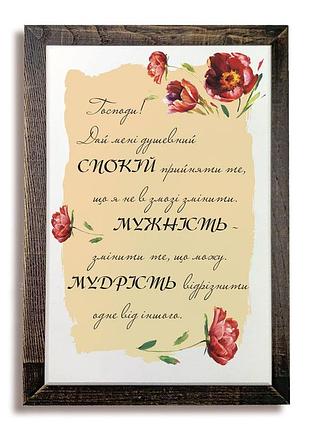 Господи!
Дай мені душевний
СПОКІЙ прийняти те,
що я не в змозі змінити.
МУЖНІСТЬ -
змінити те, що можу.
МУДРІСТЬ відрізнити
одне від іншого.